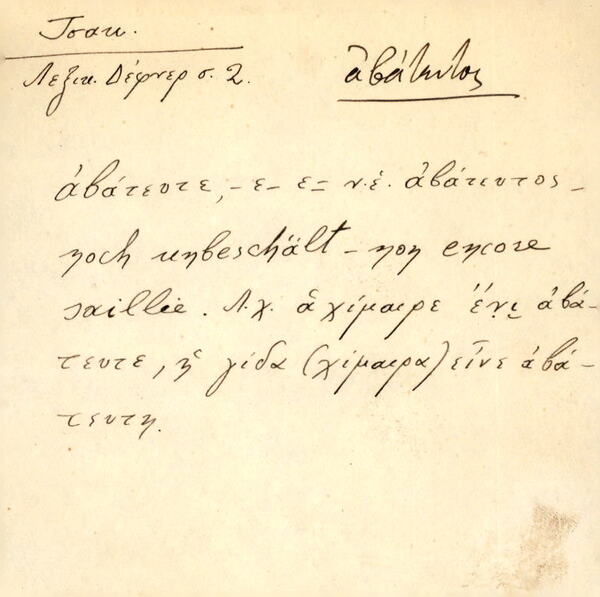 Τσακ.
Λεξικ. Δέφνερ σ. 2.
ἀβάτευτος
ἀβάτευτε, -ε- ε= ν.ἑ. ἀβάτευτος -
noch unbeschält - non encore
saillie. Λ.χ. ἁ χίμαιρε ἔνι ἀβά-
τευτε, ἡ γίδα (χίμαιρα) εἶνε ἀβά-
τευτη.